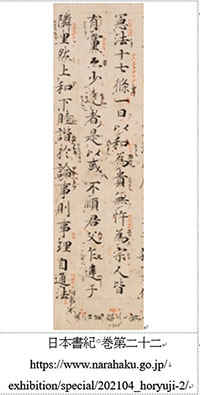 憲法十七條一曰以和為貴無忤為宗人皆
有黨亦少達者是以或不順君父乍違于
隣里然上和下睦諧於論事則事理自通
日本書紀°卷第二十二
https://www.narahaku.go.jp/
exhibition/special/202104_horyuji-2/